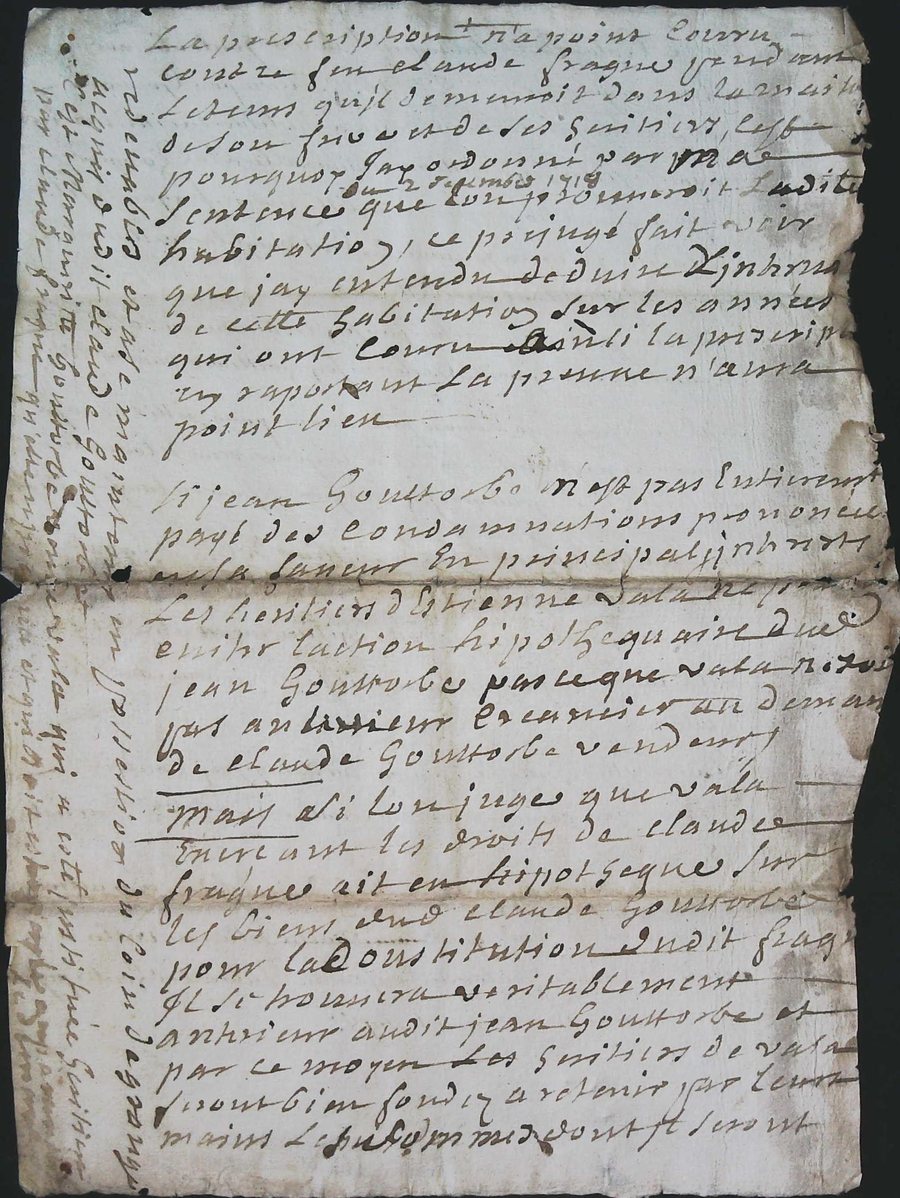 La prescription n'a point Couru
contre feu claude fragne pendant
Letems qu'il demeuroit dans la maiso
de son frere et de ses heritiers, C'est
pourquoy J'ay ordonné par ma
du 2 septembre 1718
sentence que l'on prouveroit Ladite
habitation, ce prejugé fait voir
que jay entendu deduire L'intrus
de cette habitation sur les années
qui ont Couru ainsi la prescrip
en raportant La preuve n'aura
point lieu
Si jean Gouttorbe n'est pas Entierem
payé des Condamnations prononcée
en sa faveur En principal interests
Les heritiers d'Estienne vala ne
eviter laction hipothequaire dud
jean Gouttorbe parceque vala n'est
pas anterieur Creancier au deman
de claude Gouttorbe vendeur,
Mais si l'on juge que vala
Exercant les droits de claude
fragne ait eu hipotheque sur
les biens dud claude Gouttorbe
pour la Constitution dudit fragn
Il se trouvera veritablement
anterieur audit jean Gouttorbe et
par ce moyen Les heritiers de vala
seront bien fondez a retenir par leurs
mains Les sommes dont ils seront
redevables et a se maintenir en possession du Coin de grange
acquis dudit claude Gouttorbe
C'est Marguerite Gouttorbe vala qui a esté instituée heritiere
par claude fragne